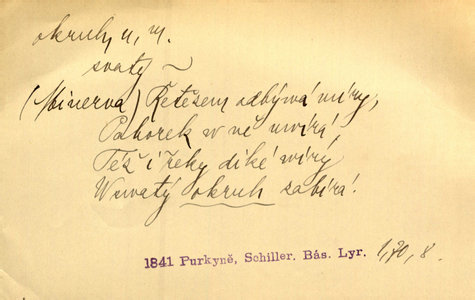 okruh, u, m.
svatý ~
(Minerva) Řetězem odbývá míry,
Pahorek w ně uwírá,
Též i řeky diké wíry,
W swatý okruh zabírá!
1841 Purkyně, Schiller. Bás. Lyr. 1,70, 8.